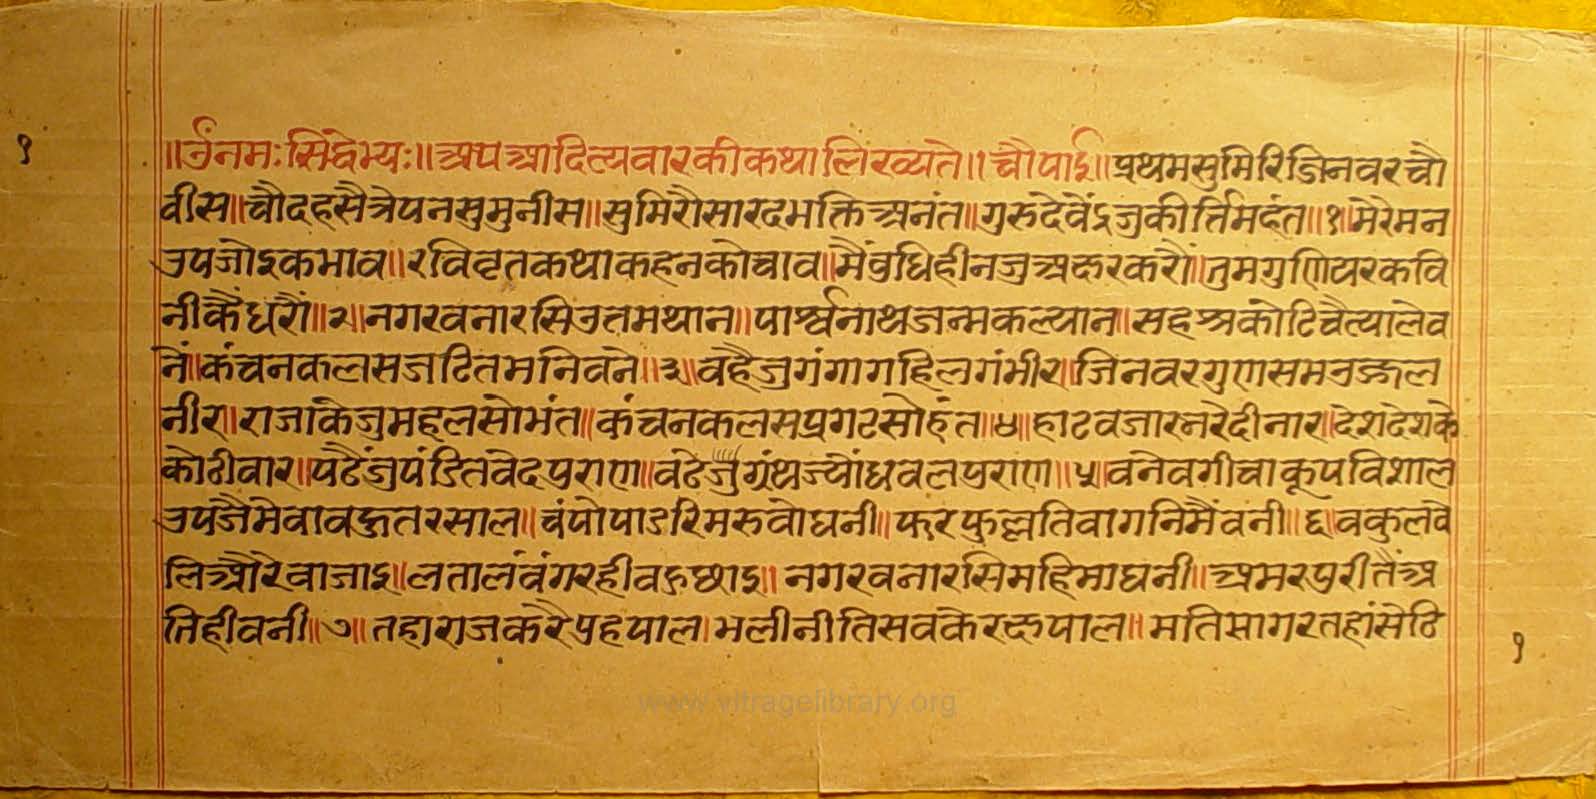 १
॥उँनमःसिद्धेभ्यः॥अथआदित्यवारकीकथालिख्यते॥चौपाई॥प्रथमसुमिरिजिनवरचौ
वीस॥चौदहसैत्रेपनसुमुनीस॥सुमिरौसारदभक्तिअनंत॥गुरुदेवेंद्रजुकीर्त्तिमहंत॥१॥मेरेमन
उपजोइकभाव॥रविवृतकथाकहनकोचाव॥मैंवुधिहीनजुअक्षरकरौं॥तुमगुणियरकवि
नीकैंधरौं॥२॥नगरवनारसिउतमथान॥पार्श्वनाथजन्मकल्यान॥सहश्रकोटिचैत्यालेव
नें॥कंचनकलसजटितमनिवने॥३॥वहैजुगंगागहिलगंभीर॥जिनवरगुणसमउज्जल
नीर॥राजाकेजुमहलसोभंत॥कंचनकलसप्रगटसोहंत॥४॥हाटवजारनरेदीनार॥देशदेशके
कोठीवार॥पढैंजुपंडितवेदपुराण॥वढेजुग्रंथज्योंधवलपुराण॥५॥वनेवगीचाकूपविशाल
उपजैमेवावहुतरसाल॥चंपोपाडरिमरुवोघनी॥फरफुल्लतिवागनिमैंवनी॥६॥वकुलवे
लिऔरेवाजाइ॥लतालंवंगरहीवहुछाइ॥नगरवनारसिमहिमाघनी॥अमरपुरीतैंअ
तिहीवनी॥७॥तहाराजकरैप्रहपाल।भलीनीतिसवकेरक्षपाल॥मतिसागरतहांसेठि
१
www.vitragelibrary.org